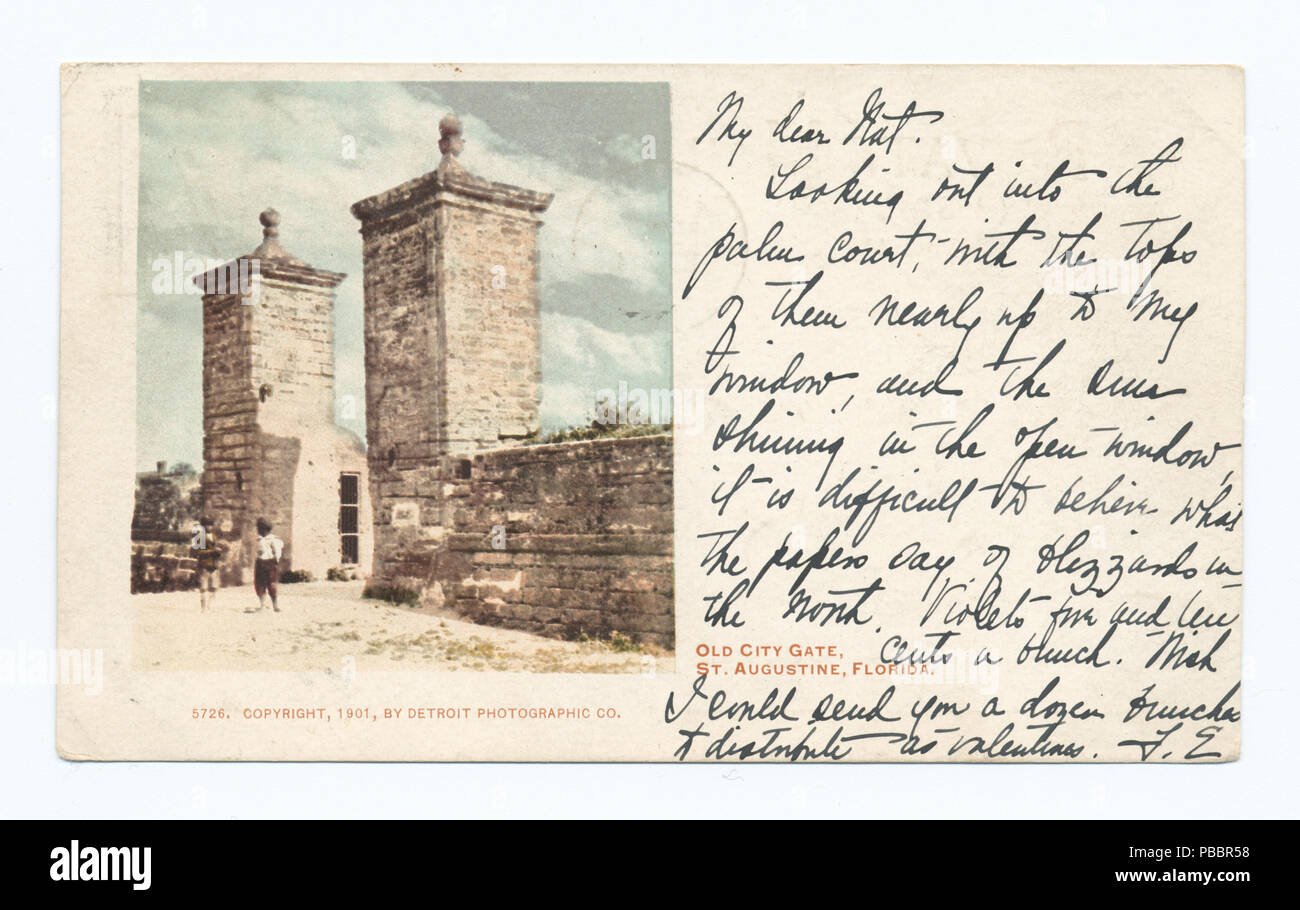 My dear Nat.
Looking out into the
palm court, with the tops
of them nearly up to my
window, and the sun
shining in the open window,
it is difficult to believe what
the papers say of blizzards in
the North. Violets five and ten
cents a bunch. Wish
I could send you a dozen bunches
to distribute as valentines. F. E
OLD CITY GATE,
ST. AUGUSTINE, FLORIDA.
5726. COPYRIGHT, 1901, BY DETROIT PHOTOGRAPHIC CO.
alamy
Image ID: PBBR58
www.alamy.com